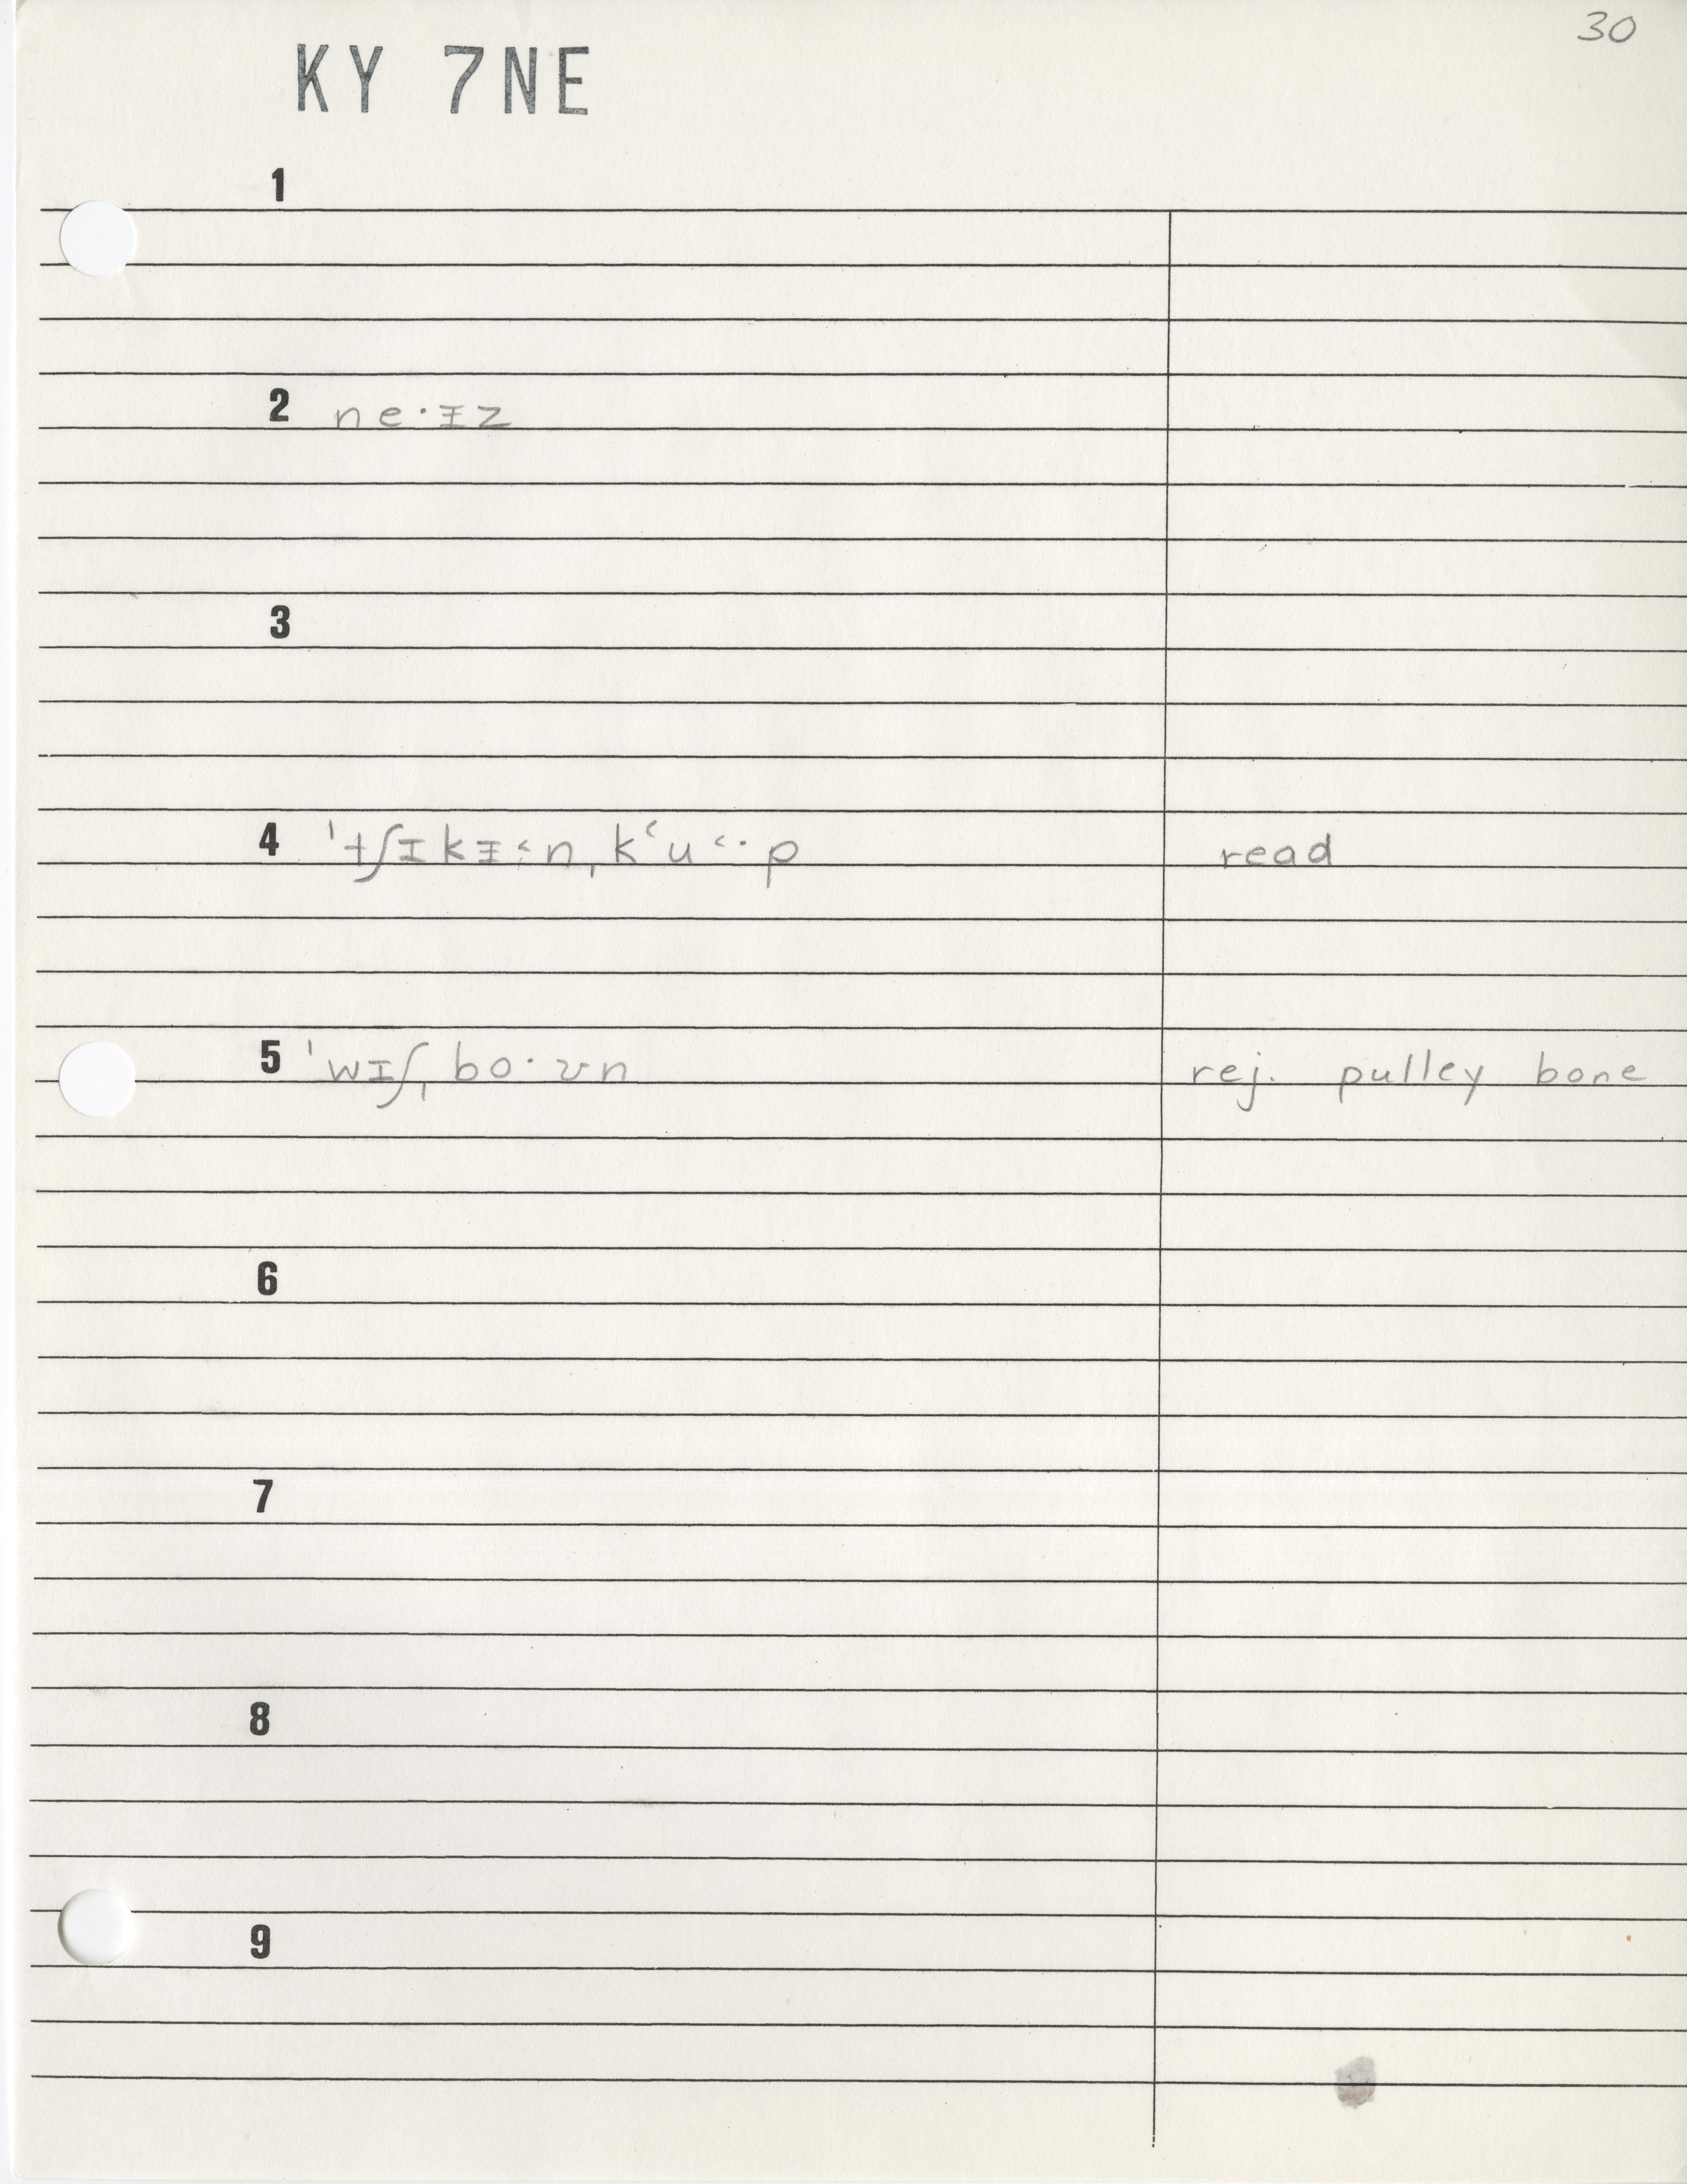 30
KY 7NE
1
2 ne·ɪz
3
4 ˈtʃɪkɪ˂nˌkʻu˂·p read
5 ˈwɪʃˌbo·ʊn rej. pulley bone
6
7
8
9